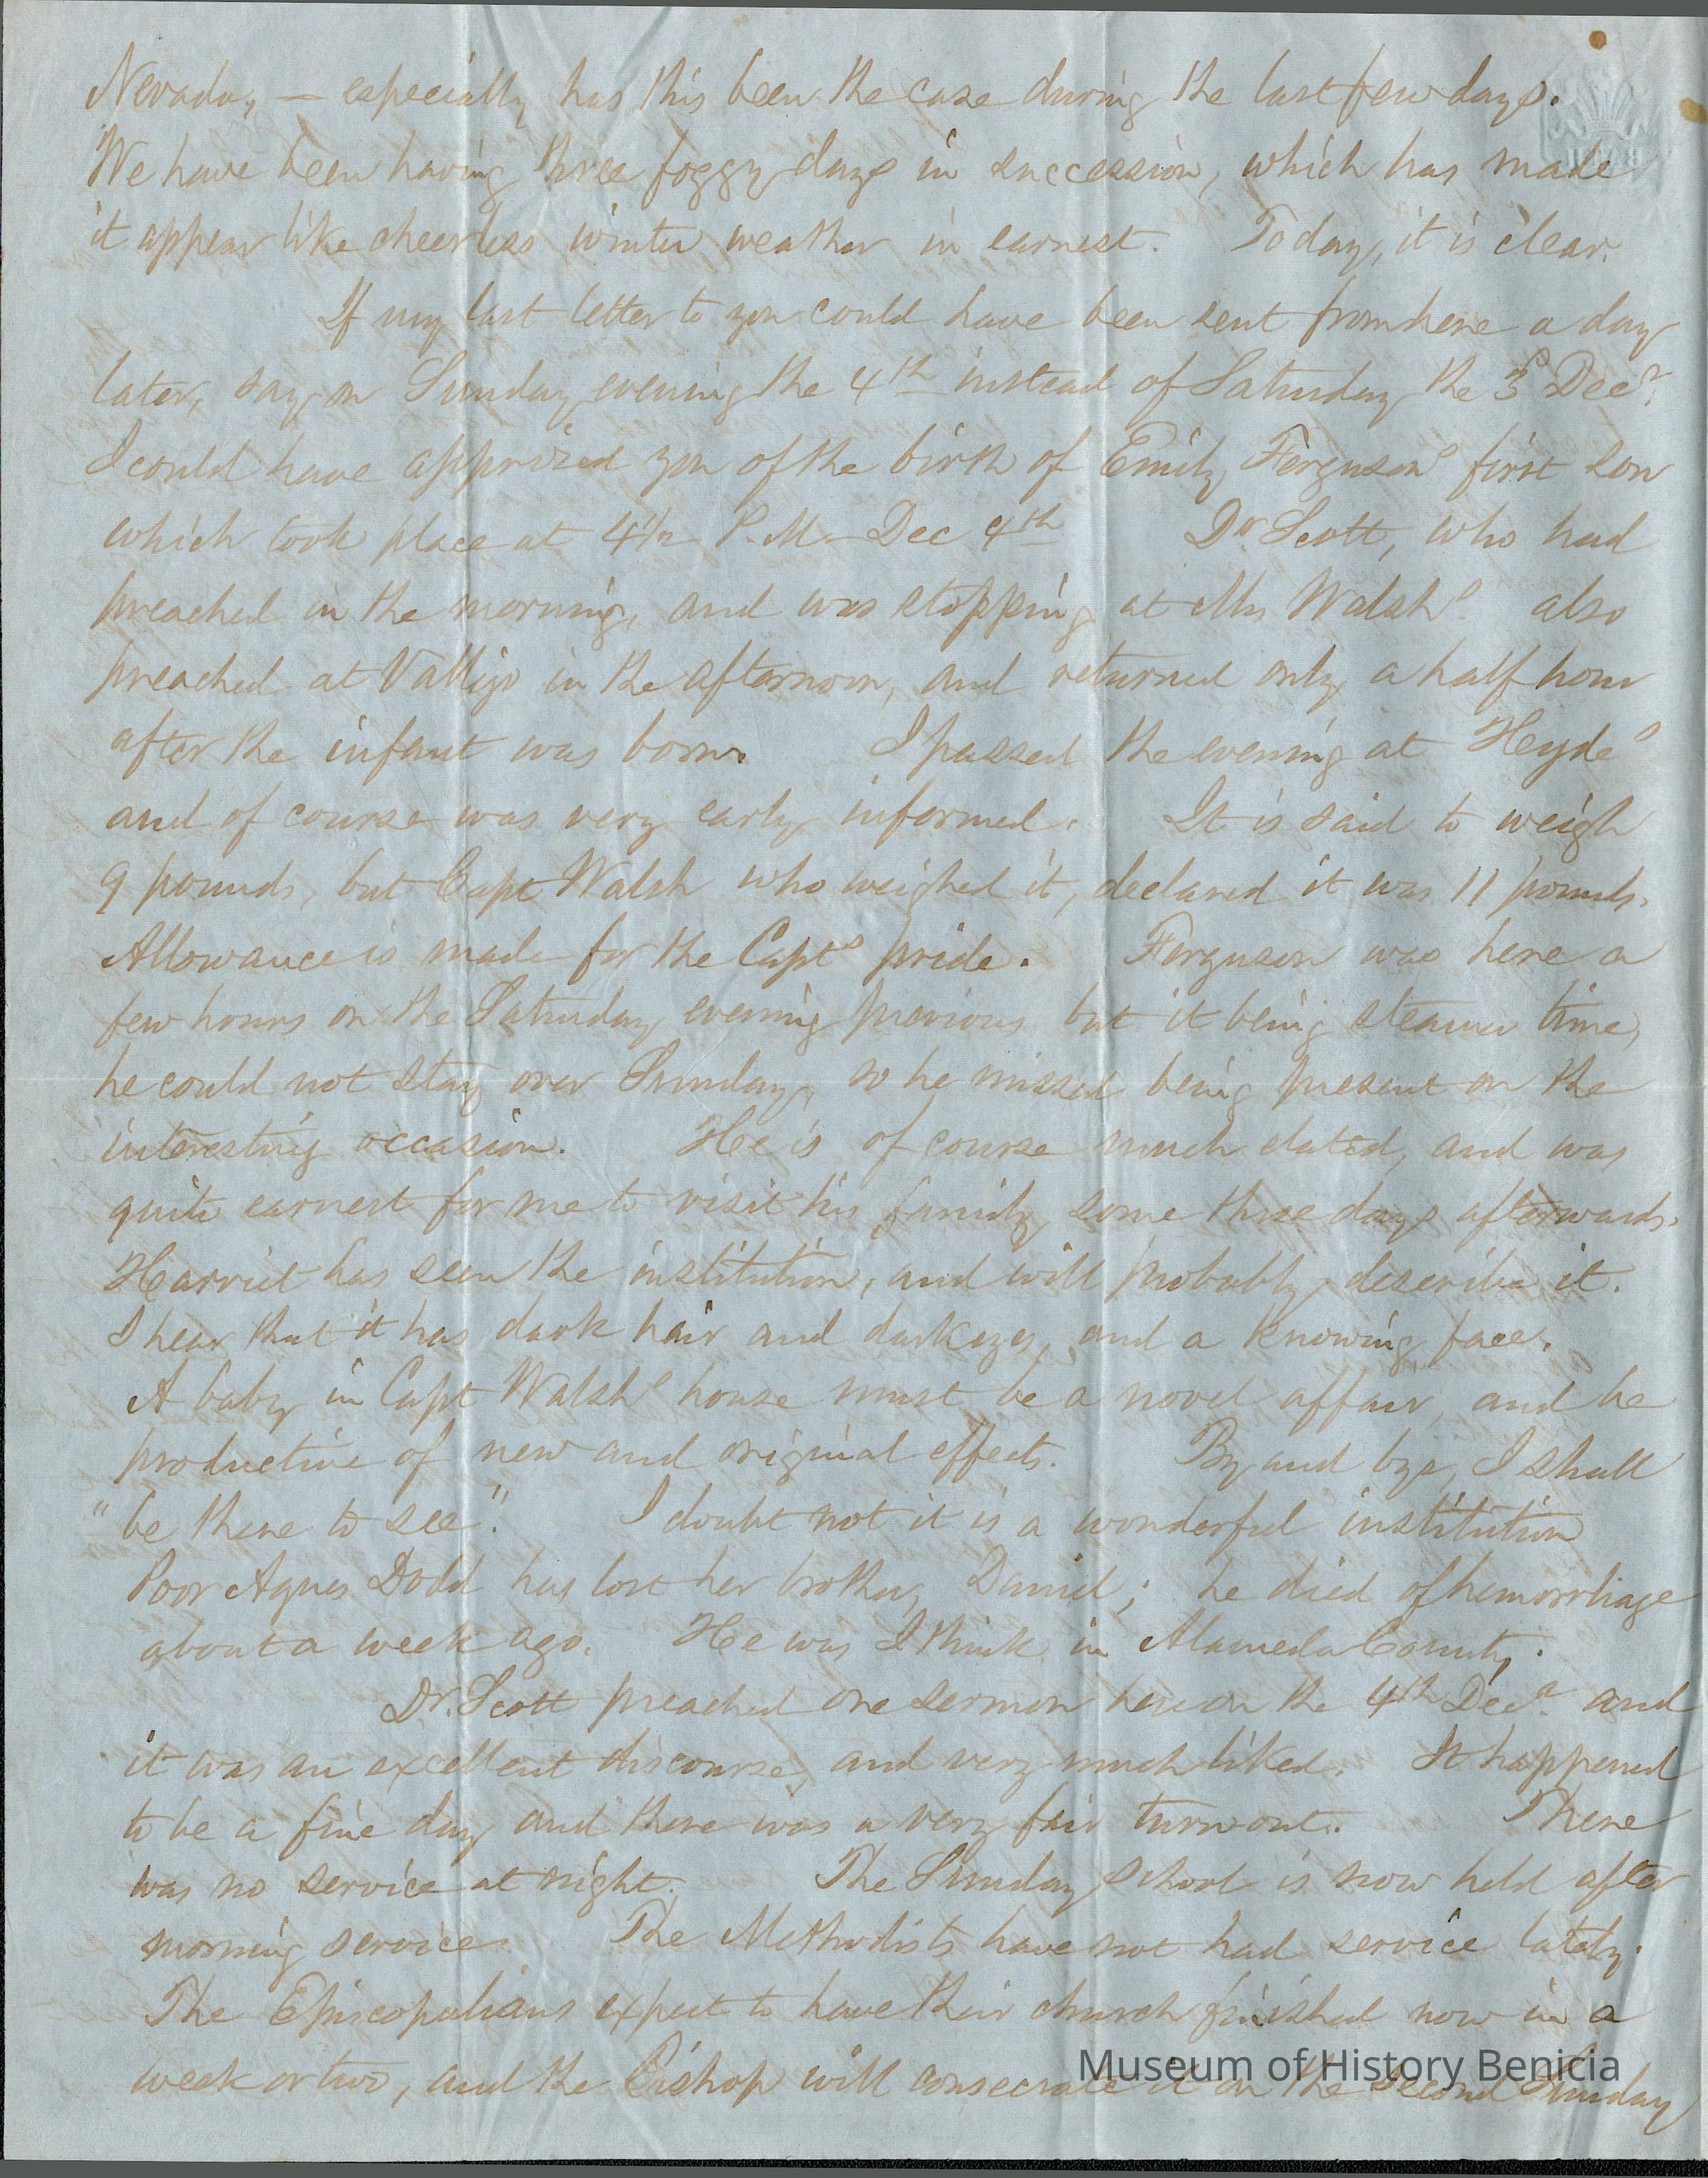 Nevada, — especially has this been the case during the last few days.
We have been having three foggy days in succession, which has made
it appear like cheerless winter weather in earnest. Today, it is clear.
If my last letter to you could have been sent from here a day
later, say on Sunday evening the 4th instead of Saturday the 3d Decr.
I could have apprized you of the birth of Emily Fergusons first son
which took place at 4 1/2 P.M. Dec 4th Dr Scott, who had
preached in the morning, and was stopping at Mrs Walshs. also
preached at Vallejo in the afternoon, and returned only a half hour
after the infant was born. I passed the evening at Heydes
and of course was very early informed. It is said to weigh
9 pounds, but Capt Walsh who weighed it, declared it was 11 pounds.
Allowance is made for the Capts pride. Ferguson was here a
few hours on the Saturday evening previous but it being steamer time,
he could not stay over Sunday, so he missed being present on the
interesting occasion. He is of course much elated, and was
quite earnest for me to visit his family some three days afterwards.
Harriet has seen the institution, and will probably describe it.
I hear that it has dark hair and dark eyes, and a knowing face.
A baby in Capt Walshs house must be a novel affair, and be
productive of new and original effects. By and bye, I shall
"be there to see". I doubt not it is a wonderful institution
Poor Agnes Dodd has lost her brother, Daniel; he died of hemorrhage
about a week ago. He was I think in Alameda County.
Dr. Scott preached one sermon here on the 4th Decr. and
it was an excellent discourse, and very much liked. It happened
to be a fine day and there was a very fair turn out. There
was no service at night. The Sunday School is now held after
morning service. The Methodists have not had service lately.
The Episcopalians expect to have their church finished now in a
week or two, and the Bishop will consecrate it on the second Sunday
Museum of History Benicia